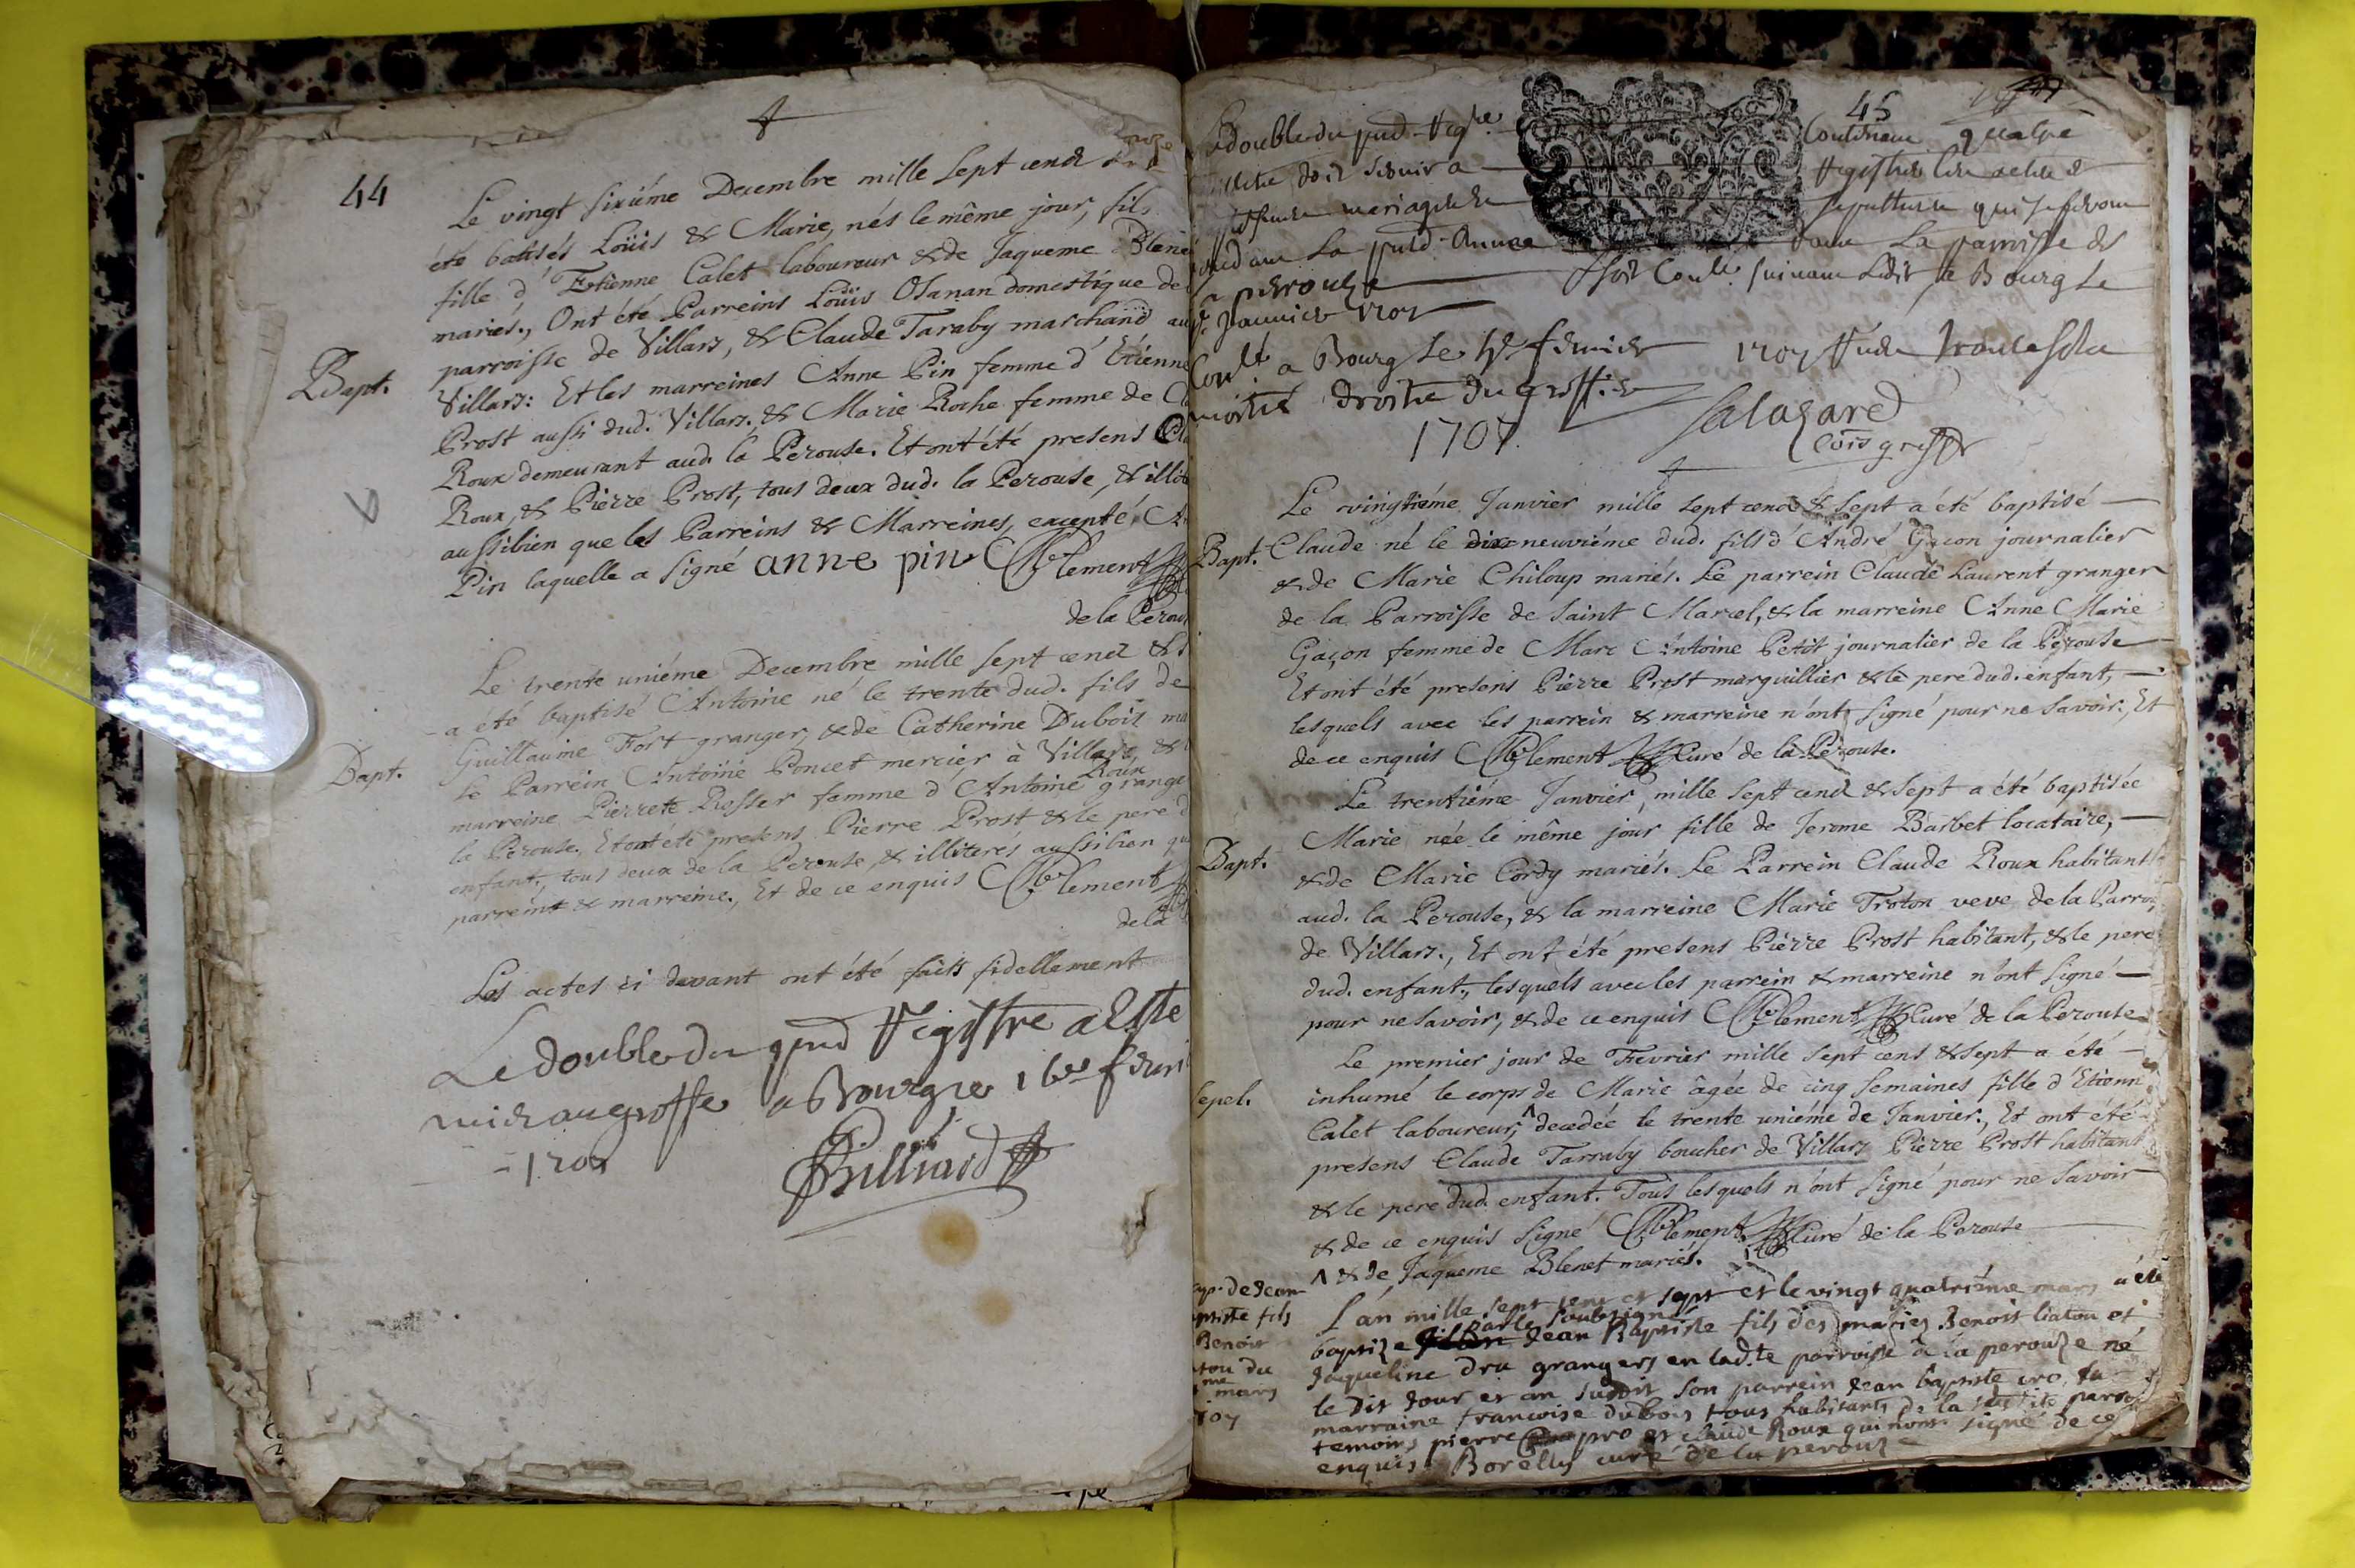 44
Le vingt sixiéme Decembre mille sept cend
été batisés Loüis & Marie, nés le même jour, fils
fille d'Etienne Calet laboureur & de Jaqueme Blene
mariés., Ont été Parreins Loüis Osanan domestique de
parroisse de Villars, & Claude Taraby marchand au
Bapt.
Villars: Et les marreines Anne Pin femme d'Etienne
Prost aussi dud. Villars. & Marie Roche femme de Cl
Roux demeurant aud. la Perouse. Et ont été presens Cla
Roux, & Pierre Prost, tous deux dud. la Perouse, & illit
aussibien que les Parreins & Marreines, excepté A
Pin laquelle a signé anne pin Clement
de la Perou
Le trente uniéme Decembre mille sept cend &
a été baptisé Antoine né le trente dud. fils de
Guillaume Fort granger, & de Catherine Dubois ma
Bapt.
le Parrein Antoine Poncet mercier à Villars, &
marreine Pierrete Rosser femme d'Antoine Roux grange
la Perouse. Et ont été presens Pierre Prost & le pere d
enfant, tous deux de la Perouse, & illiterés aussibien qu
parreint & marreine., Et de ce enquis Clement
de la
Les actes ci devant ont été faits fidellement
Le double du pnd Registre a Este
mis au greffe a Bourg le
1707
45
Le double du pnd Regre
Contenan quatre
doit servir a
Registre les actes d
mariages &
sepulture qui se feron
pendant la pnd Annee
dans la parroisse de
la perouse
Bourg le
Janvier 1707
Conlé a Bourg le
moitié droitte du greffier
1707.
Le vingtiéme Janvier mille sept cend & sept a été baptisé
Bapt.
Claude né le dixneuviéme dud. fils d'André Gaçon journalier
& de Marie Chiloup mariés. Le parrein Claude Laurent granger
de la Parroisse de Saint Marcel, & la marreine Anne Marie
Gaçon femme de Marc Antoine Petit journalier de la Perouse
Et ont été presens Pierre Prost marguillier & le pere dud. enfant,
lesquels avec les parrein & marreine n'ont signé pour ne savoir. Et
de ce enquis Clement Curé de la Perouse.
Le trentiéme Janvier, mille sept cend & sept a été baptisée
Marie née le même jour fille de Jerome Barbet locataire,
Bapt.
& de Marie Cordy mariés. Le Parrein Claude Roux habitant
aud. la Perouse, & la marreine Marie Troton veve de la Parroi
de Villars., Et ont été presens Pierre Prost habitant, & le pere
dud. enfant., lesquels avec les parrein & marreine n'ont signé
pour ne savoir, & de ce enquis Clement Curé de la Perouse
Le premier jour de Fevrier mille sept cens & sept a été
Sepel.
inhumé le corps de Marie âgée de cinq semaines fille d'Etienn
Calet laboureur, ^ decedée le trente uniéme de Janvier., Et ont été
presens Claude Tarraby boucher de Villars Pierre Prost habitant
& le pere dud. enfant. Tous lesquels n'ont signé pour ne savoir
& de ce enquis signé Clement Curé de la Perouse
^ & de Jaqueme Blenet mariés.
de Jean
ptiste fils
Benoit
tou du
mars
L'an mille sept cent et sept et le vingt quatriéme mars a été
baptizé par le soubsigné Jean Baptiste fils des mariez Benoit liatou et
Jaqueline dru grangers en lad.te parroisse de la perouze né
le dit jour et an susdit son parrein Jean baptiste
marraine francoise dubois tous habitants de la susdite parroi
temoins pierre pro et claude Roux qui n'ont signé de ce
enquis Borelly curé de la perouze